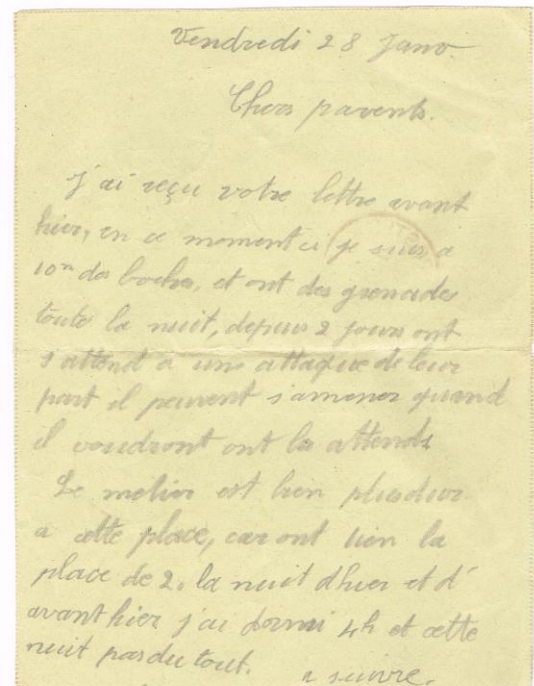 Vendredi 28 Janv
Chers parents.
J'ai reçu votre lettre avant
hier, en ce moment ci je suis a
10m des boches, et ont des grenades
toute la nuit, depuis 2 jours ont
s'attend a une attaque de leur
part il peuvent s'amener quand
il voudront ont les attends
Le metier est bien plus dur
a cette place, car ont tien la
place de 2, la nuit d'hier et d'
avant hier j'ai dormi 4h et cette
nuit pas du tout. a suivre.